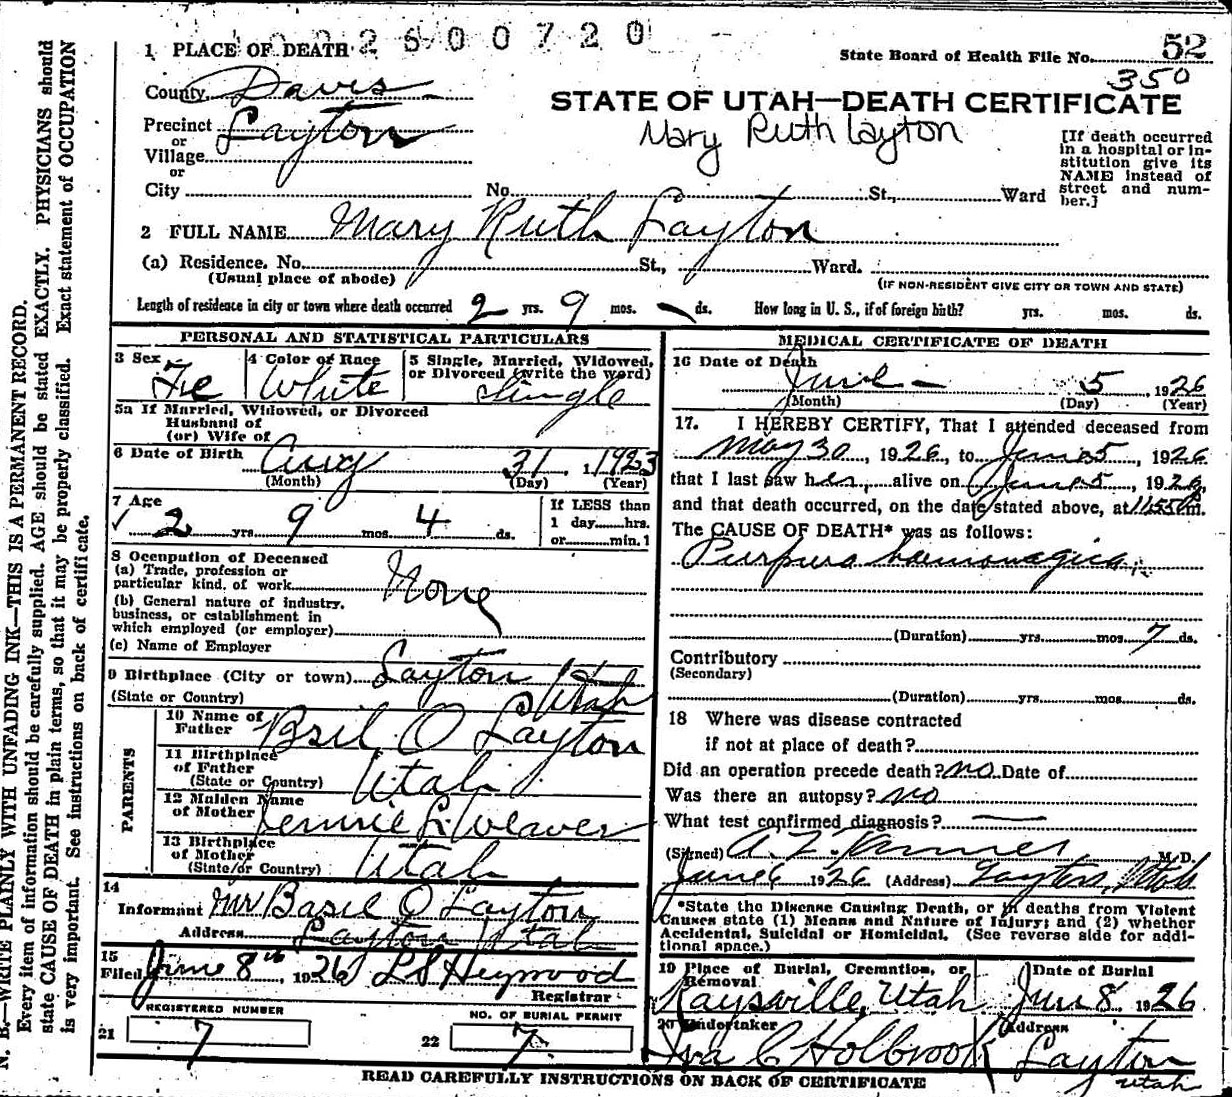 2600720
1 PLACE OF DEATH
State Board of Health File No. 52
350
County Davis
STATE OF UTAH—DEATH CERTIFICATE
Mary Ruth Layton
Precinct Layton
or
Village
or
City No. St., Ward
[If death occurred
in a hospital or in-
stitution give its
NAME instead of
street and num-
ber.]
2 FULL NAME Mary Ruth Layton
(a) Residence. No. St., Ward.
(Usual place of abode) (IF NON-RESIDENT GIVE CITY OR TOWN AND STATE)
Length of residence in city or town where death occurred 2 yrs. 9 mos. ds. How long in U. S., if of foreign birth? yrs. mos. ds.
PERSONAL AND STATISTICAL PARTICULARS
3 Sex 4 Color or Race 5 Single, Married, Widowed,
or Divorced (write the word)
Fe White Single
5a If Married, Widowed, or Divorced
Husband of
(or) Wife of
6 Date of Birth Aug 31, 1923
(Month) (Day) (Year)
7 Age If LESS than
2 yrs. 9 mos. 4 ds. 1 day hrs.
or min.
8 Occupation of Deceased
(a) Trade, profession or
particular kind of work None
(b) General nature of industry,
business, or establishment in
which employed (or employer)
(c) Name of Employer
9 Birthplace (City or town) Layton
(State or Country) Utah
PARENTS
10 Name of
Father Basil O Layton
11 Birthplace
of Father
(State or Country) Utah
12 Maiden Name
of Mother Jennie L Weaver
13 Birthplace
of Mother
(State or Country) Utah
14
Informant Mr Basil O Layton
Address Layton Utah
15
Filed June 8th, 1926 L S Heywood
Registrar
REGISTERED NUMBER NO. OF BURIAL PERMIT
21 7 22 7
MEDICAL CERTIFICATE OF DEATH
16 Date of Death
June 5, 1926
(Month) (Day) (Year)
17. I HEREBY CERTIFY, That I attended deceased from
May 30, 1926, to June 5, 1926
that I last saw her alive on June 5, 1926,
and that death occurred, on the date stated above, at 11:55 P m.
The CAUSE OF DEATH* was as follows:
Purpura hemorragica
(Duration) yrs. mos. 7 ds.
Contributory
(Secondary)
(Duration) yrs. mos. ds.
18 Where was disease contracted
if not at place of death?
Did an operation precede death? no Date of
Was there an autopsy? no
What test confirmed diagnosis?
(Signed) A. Z. Tanner M. D.
June 6 1926 (Address) Layton, Utah
*State the Disease Causing Death, or in deaths from Violent
Causes state (1) Means and Nature of Injury; and (2) whether
Accidental, Suicidal or Homicidal. (See reverse side for addi-
tional space.)
19 Place of Burial, Cremation, or
Removal Date of Burial
Kaysville, Utah June 8 1926
20 Undertaker Address
Iva C Holbrook Layton
Utah
READ CAREFULLY INSTRUCTIONS ON BACK OF CERTIFICATE
N. B.—WRITE PLAINLY WITH UNFADING INK—THIS IS A PERMANENT RECORD.
Every item of information should be carefully supplied. AGE should be stated EXACTLY. PHYSICIANS should
state CAUSE OF DEATH in plain terms, so that it may be properly classified. Exact statement of OCCUPATION
is very important. See instructions on back of certificate.